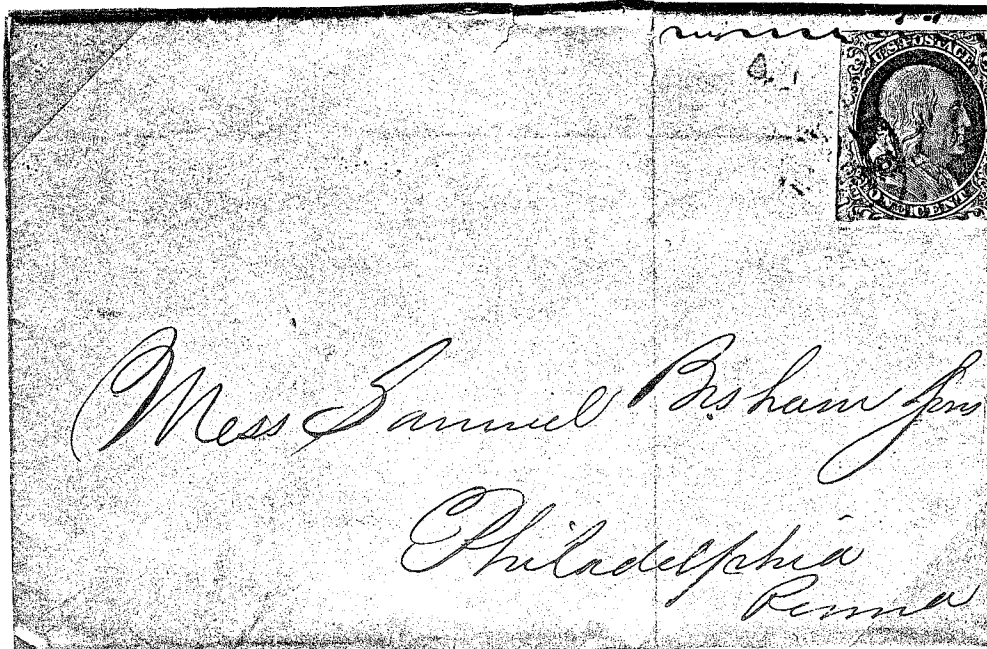 U.S. POSTAGE
ONE CENT
Mess Samuel Bispham
Philadelphia
Penna